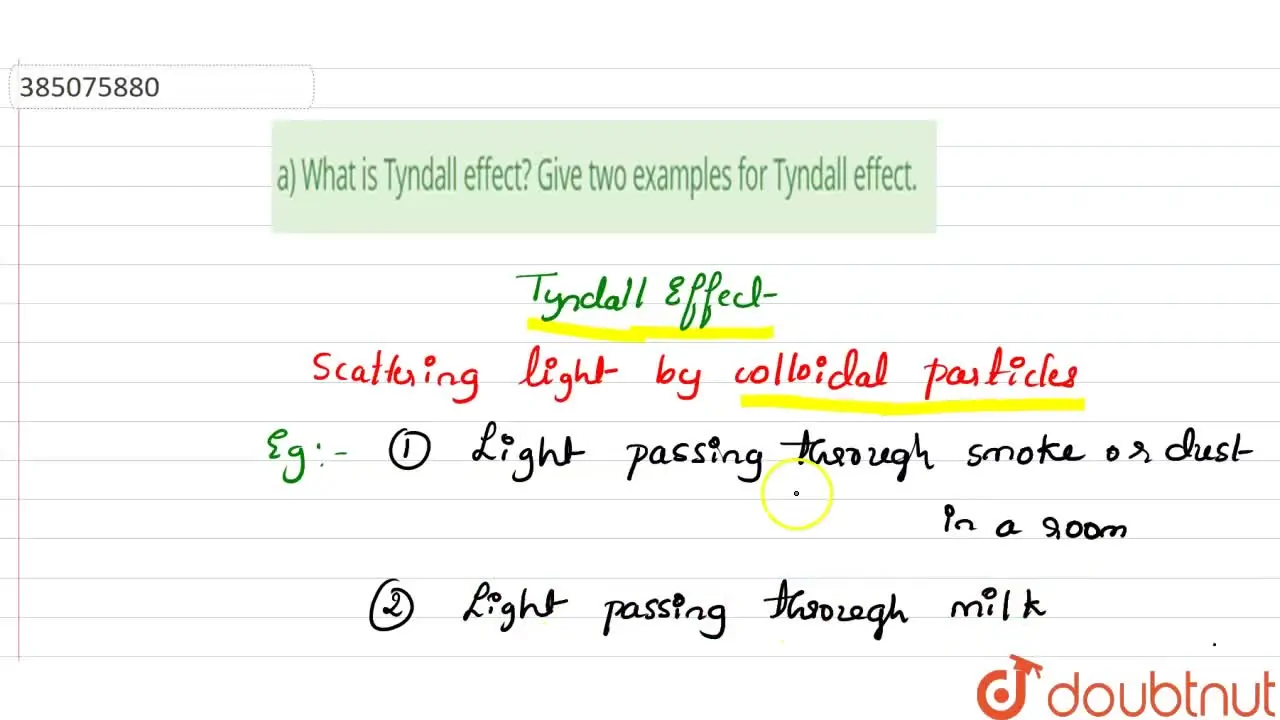 385075880
a) What is Tyndall effect? Give two examples for Tyndall effect.
Tyndall Effect-
Scattering light by colloidal particles
Eg:- ① Light passing through smoke or dust
in a room
② Light passing through milk
doubtnut